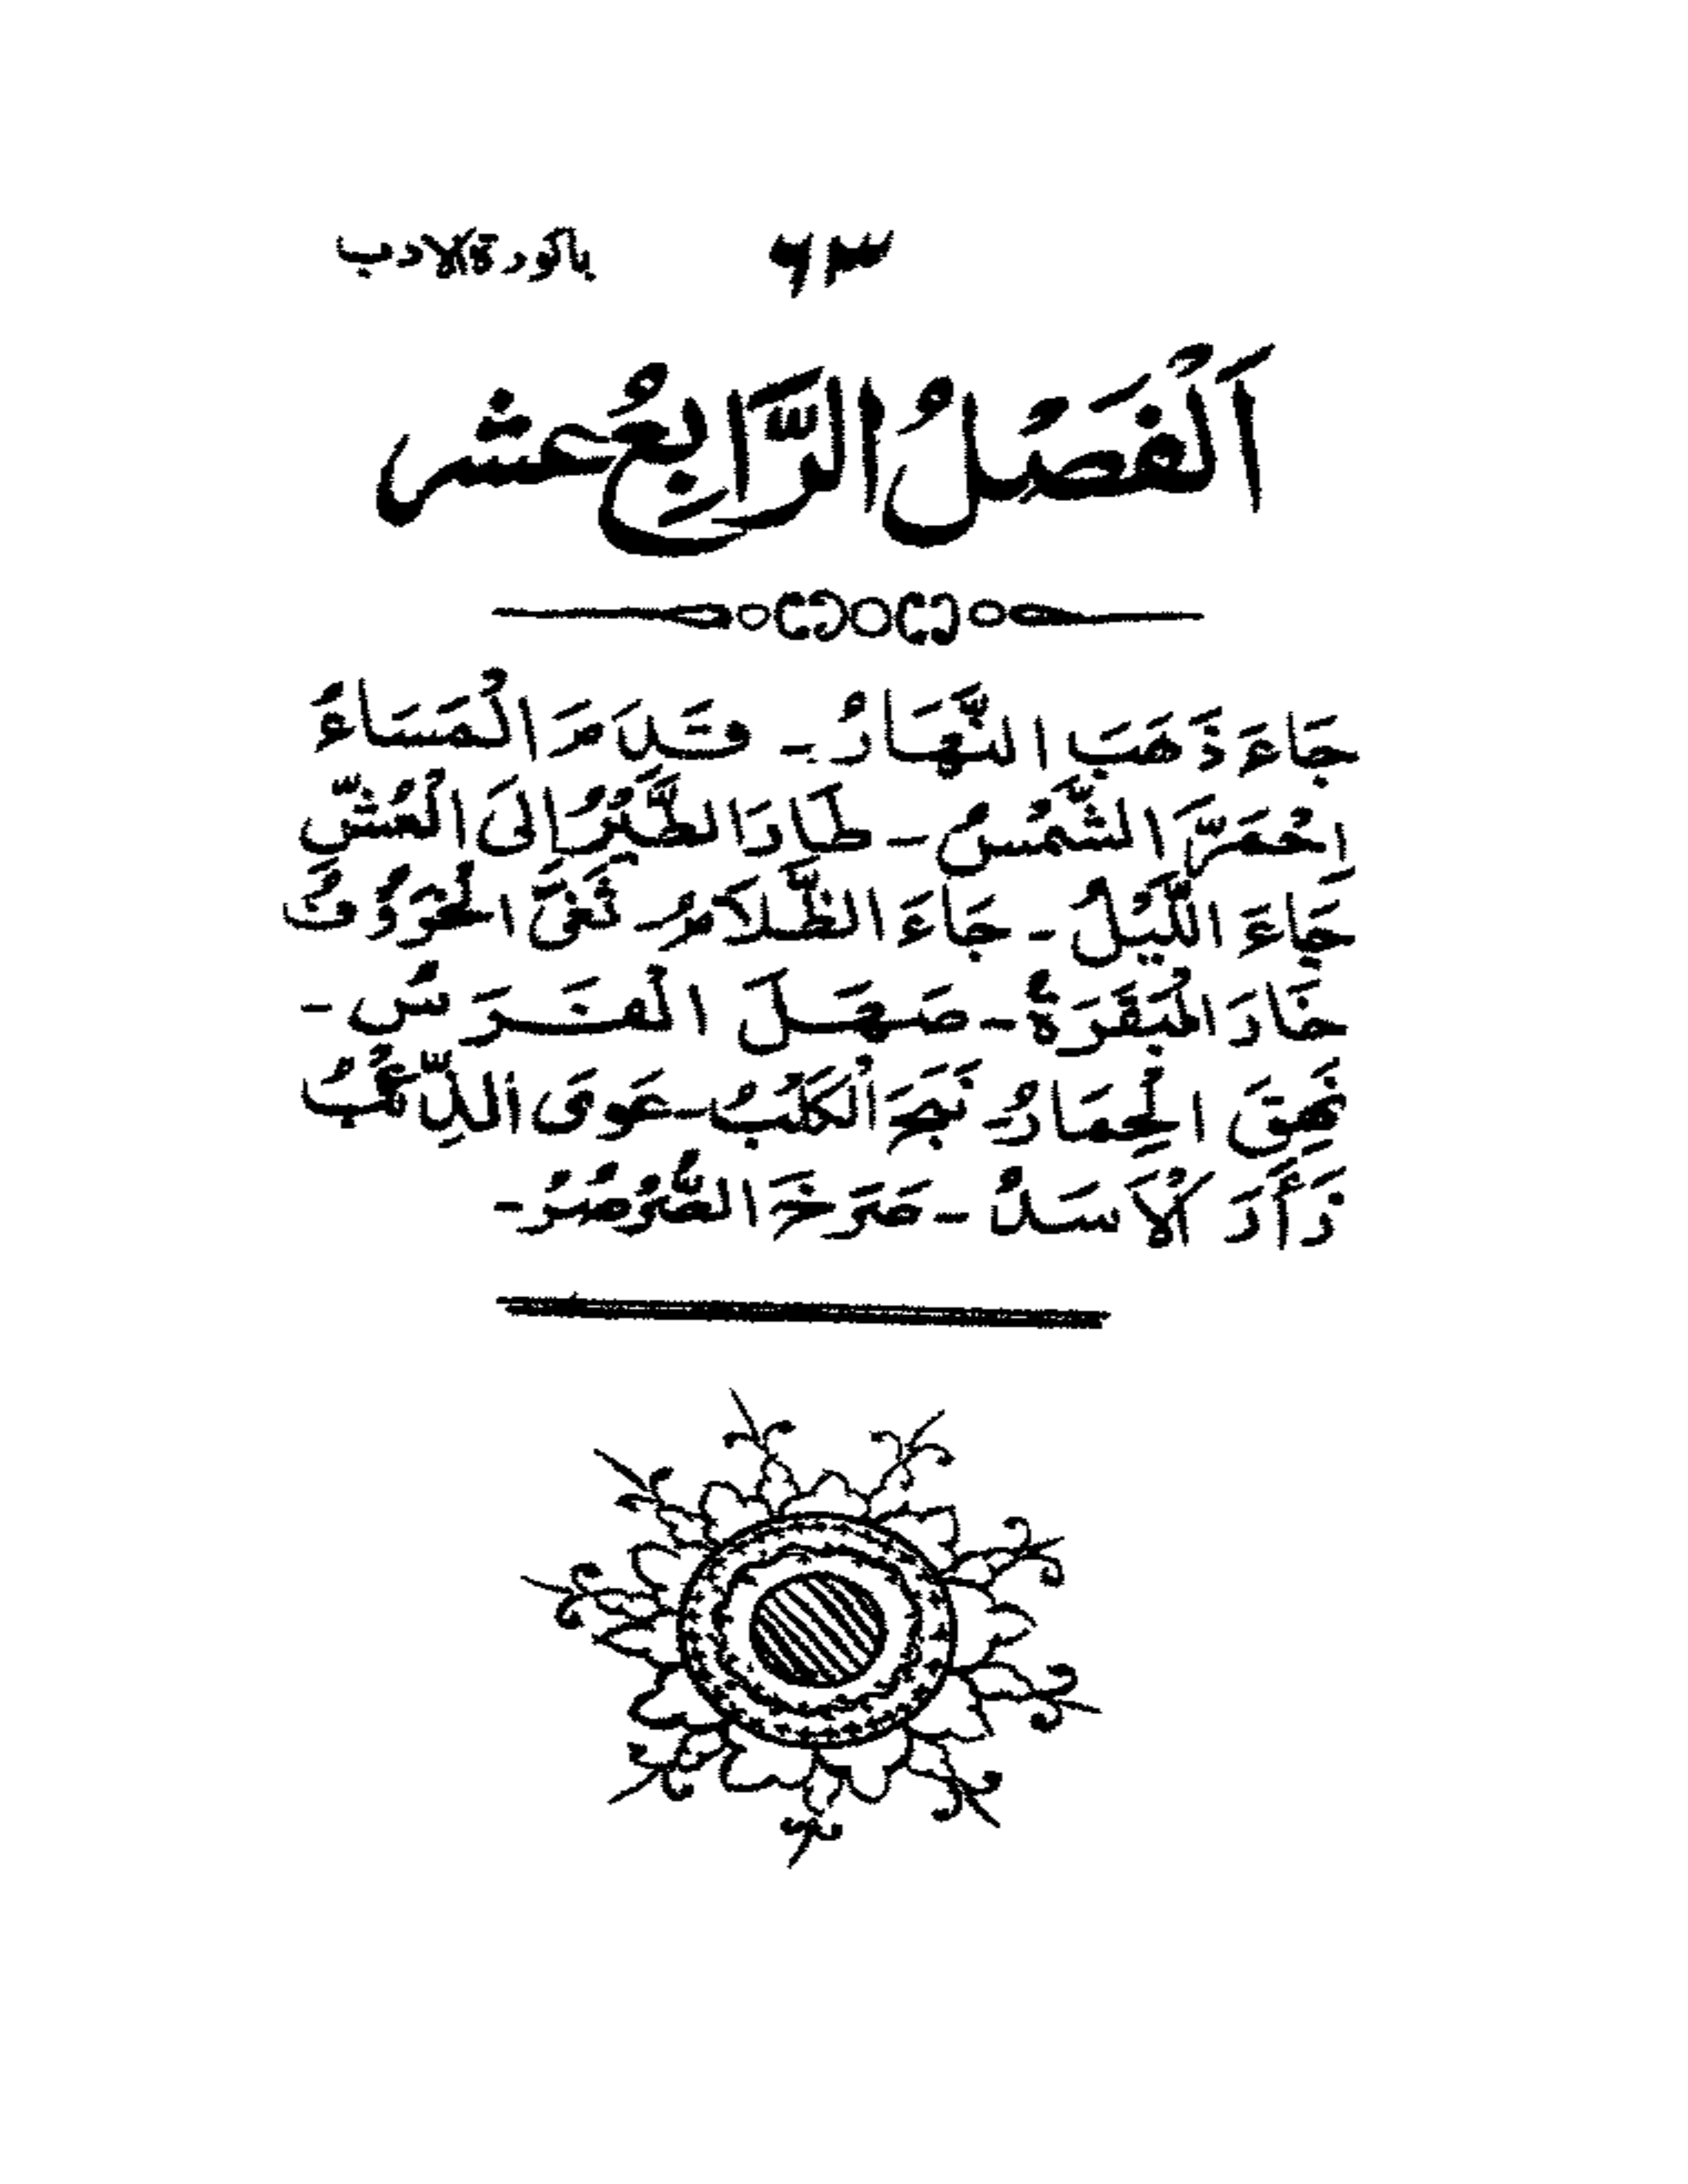 ۶۳ باكورة الادب
اَلْفَصْلُ الرَّابِعُ عشر
جَاءَ ذَهَبَ النَّهَارُ - قَدِمَ الْمَسَاءُ
اِحْمَرَّ الشَّمْسُ - طَارَ الطَّيْرُ اِلَى الْعُشِّ
جَاءَ اللَّيْلُ - جَاءَ الظَّلَامُ نَقَّ
خَارَ الْبَقَرَةُ - صَهَلَ الْفَرَسُ -
نَهَقَ الْحِمَارُ نَبَحَ الْكَلْبُ - عَوَى الذِّئْبُ
زَأَرَ الْأَسَدُ - صَرَخَ الصُّرْصُرُ -